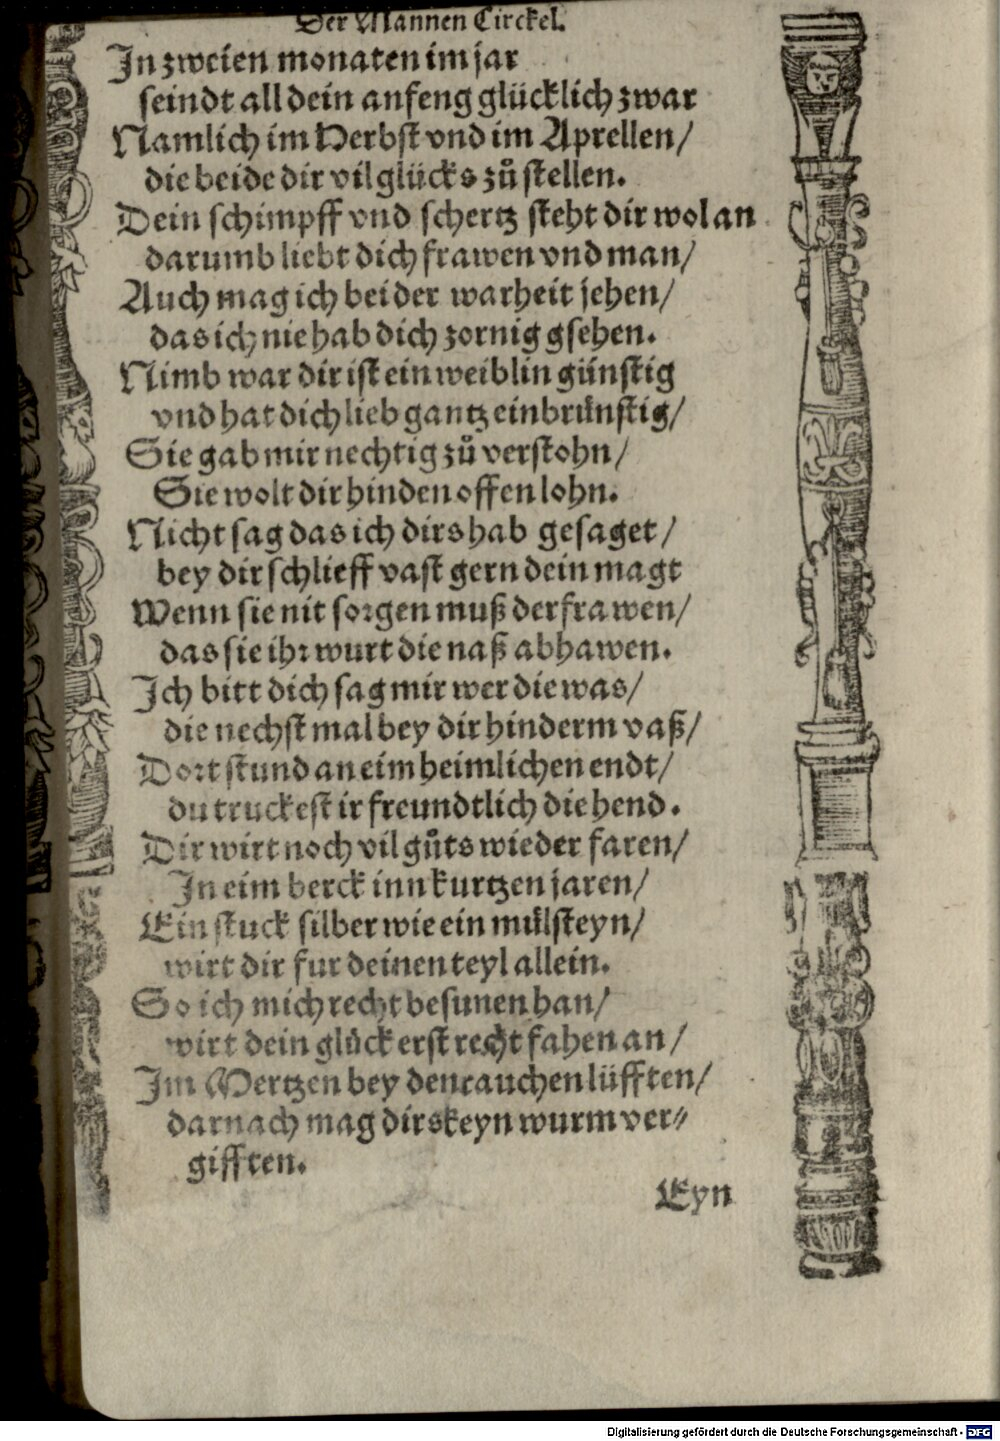 Der Mannen Circkel.
In zweien monaten im jar
seindt all dein anfeng glücklich zwar
Namlich im Herbst vnd im Aprellen/
die beide dir vil glücks zů stellen.
Dein schimpff vnd schertz steht dir wol an
darumb liebt dich frawen vnd man/
Auch mag ich bei der warheit jehen/
das ich nie hab dich zornig gsehen.
Nimb war dir ist ein weiblin günstig
vnd hat dich lieb gantz einbrünstig/
Sie gab mir nechtig zů verstohn/
Sie wolt dir hinden offen lohn.
Nicht sag das ich dirs hab gesaget/
bey dir schlieff vast gern dein magt
Wenn sie nit sorgen muß der frawen/
das sie ihr wurt die naß abhawen.
Ich bitt dich sag mir wer die was/
die nechst mal bey dir hinderm vaß/
Dort stund an eim heimlichen endt/
du truckest ir freundtlich die hend.
Dir wirt noch vil gůts wieder faren/
In eim berck inn kurtzen jaren/
Ein stuck silber wie ein mülsteyn/
wirt dir fur deinen teyl allein.
So ich mich recht besunen han/
wirt dein glück erst recht fahen an/
Im Mertzen bey den rauchen lüfften/
darnach mag dirs keyn wurm ver⸗
gifften.
Eyn
Digitalisierung gefördert durch die Deutsche Forschungsgemeinschaft - DFG